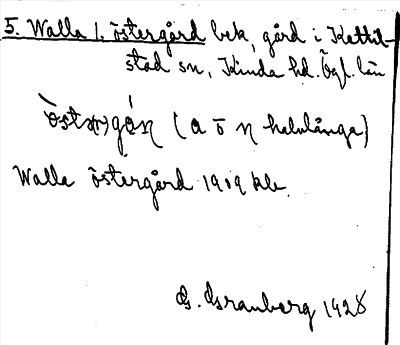 5. Walla l. östergård bek. gård i Kettil-
stad sn, Kinda hd. Ögl. län
(a o n halvlånga)
Walla östergård 1919 kle.
G. Granberg 1928